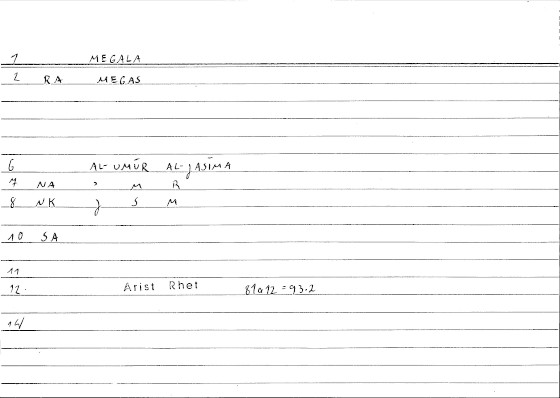 1 MEGALA
2 RA MEGAS
6 AL-UMŪR AL-JASĪMA
7 NA ʾ M R
8 NK J S M
10 SA
11
12. Arist Rhet 81a12 = 93.2
14/